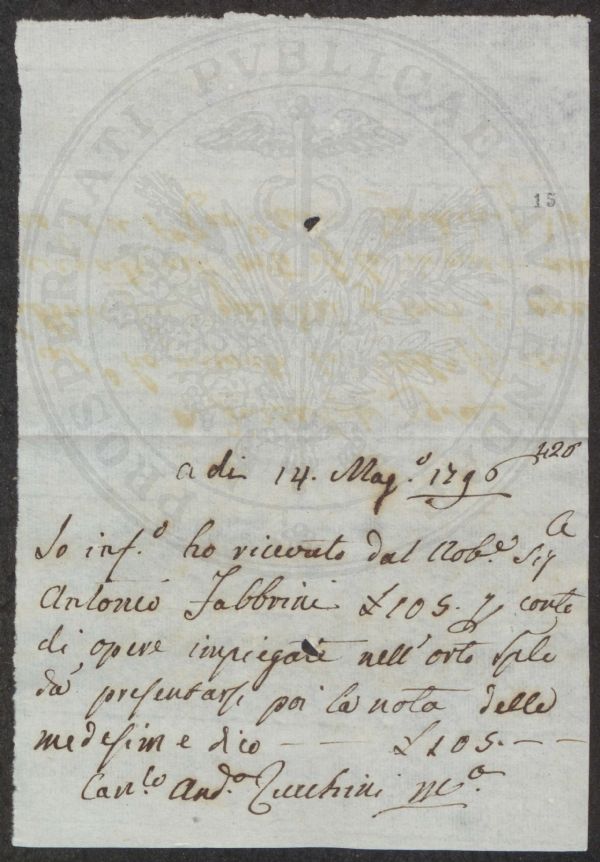 PROSPERITATI PVBLICAE AVGENDAE
15
420
a di 14. Mag.º 1796
A
Io inf.º ho ricevuto dal Nob.e Sig
Antonio Fabbrini £ 105. p conto
di opere impiegate nell' orto
da presentarsi poi la nota delle
medesime dico — — £ 105. — —
Can.co And.a Zucchini m.º